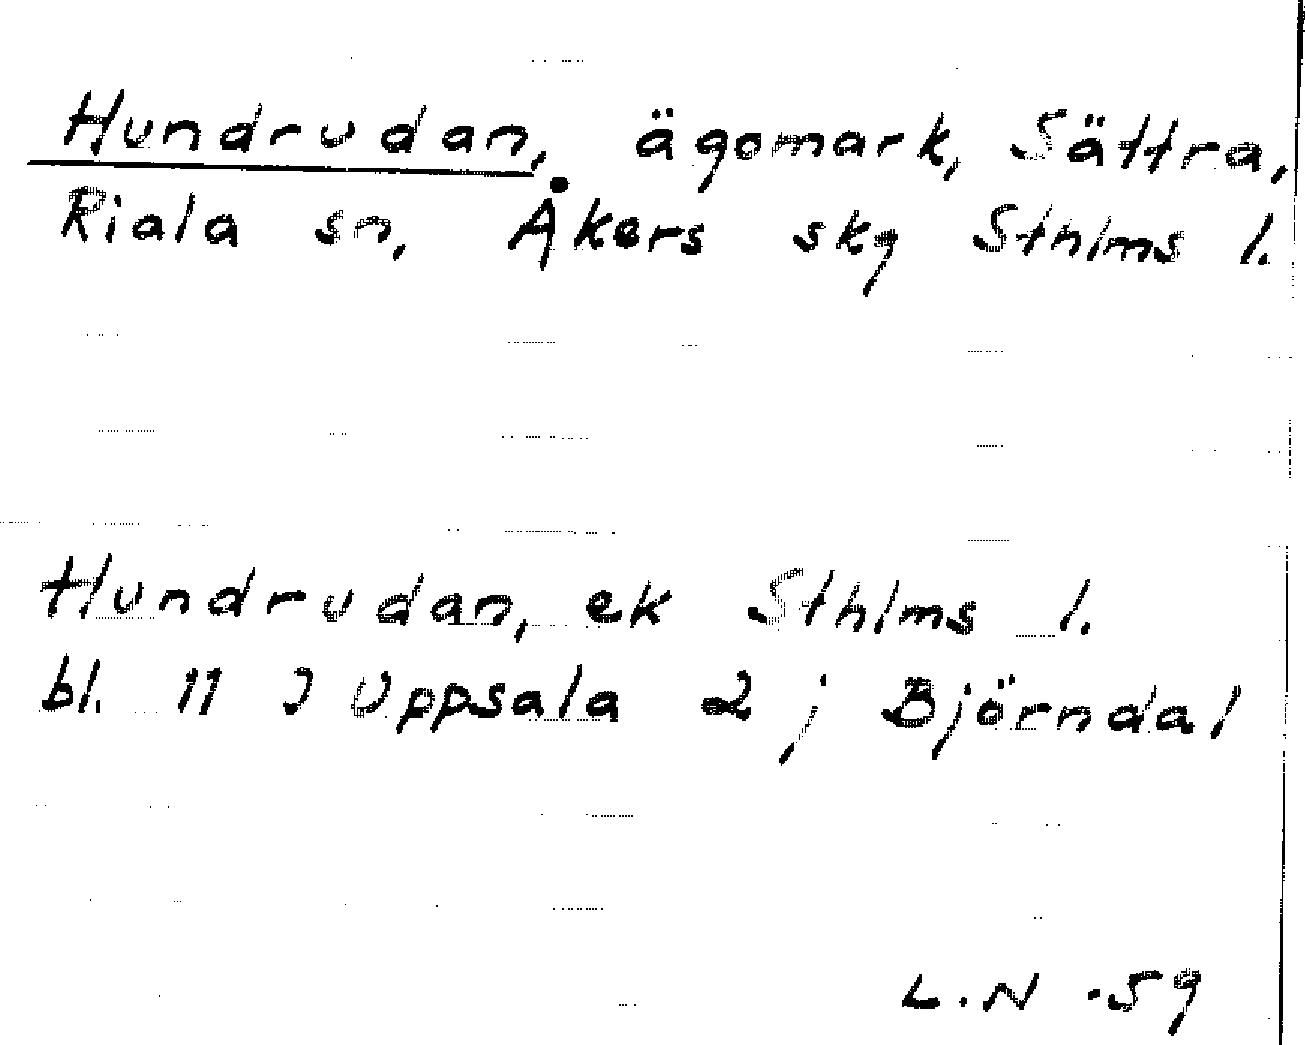 Hundrudan, ägomark, Sättra,
Riala sn, Åkers skg Sthlms l.
Hundrudan, ek Sthlms l.
bl. 11 J Uppsala 2 ; Björndal
L.N -59